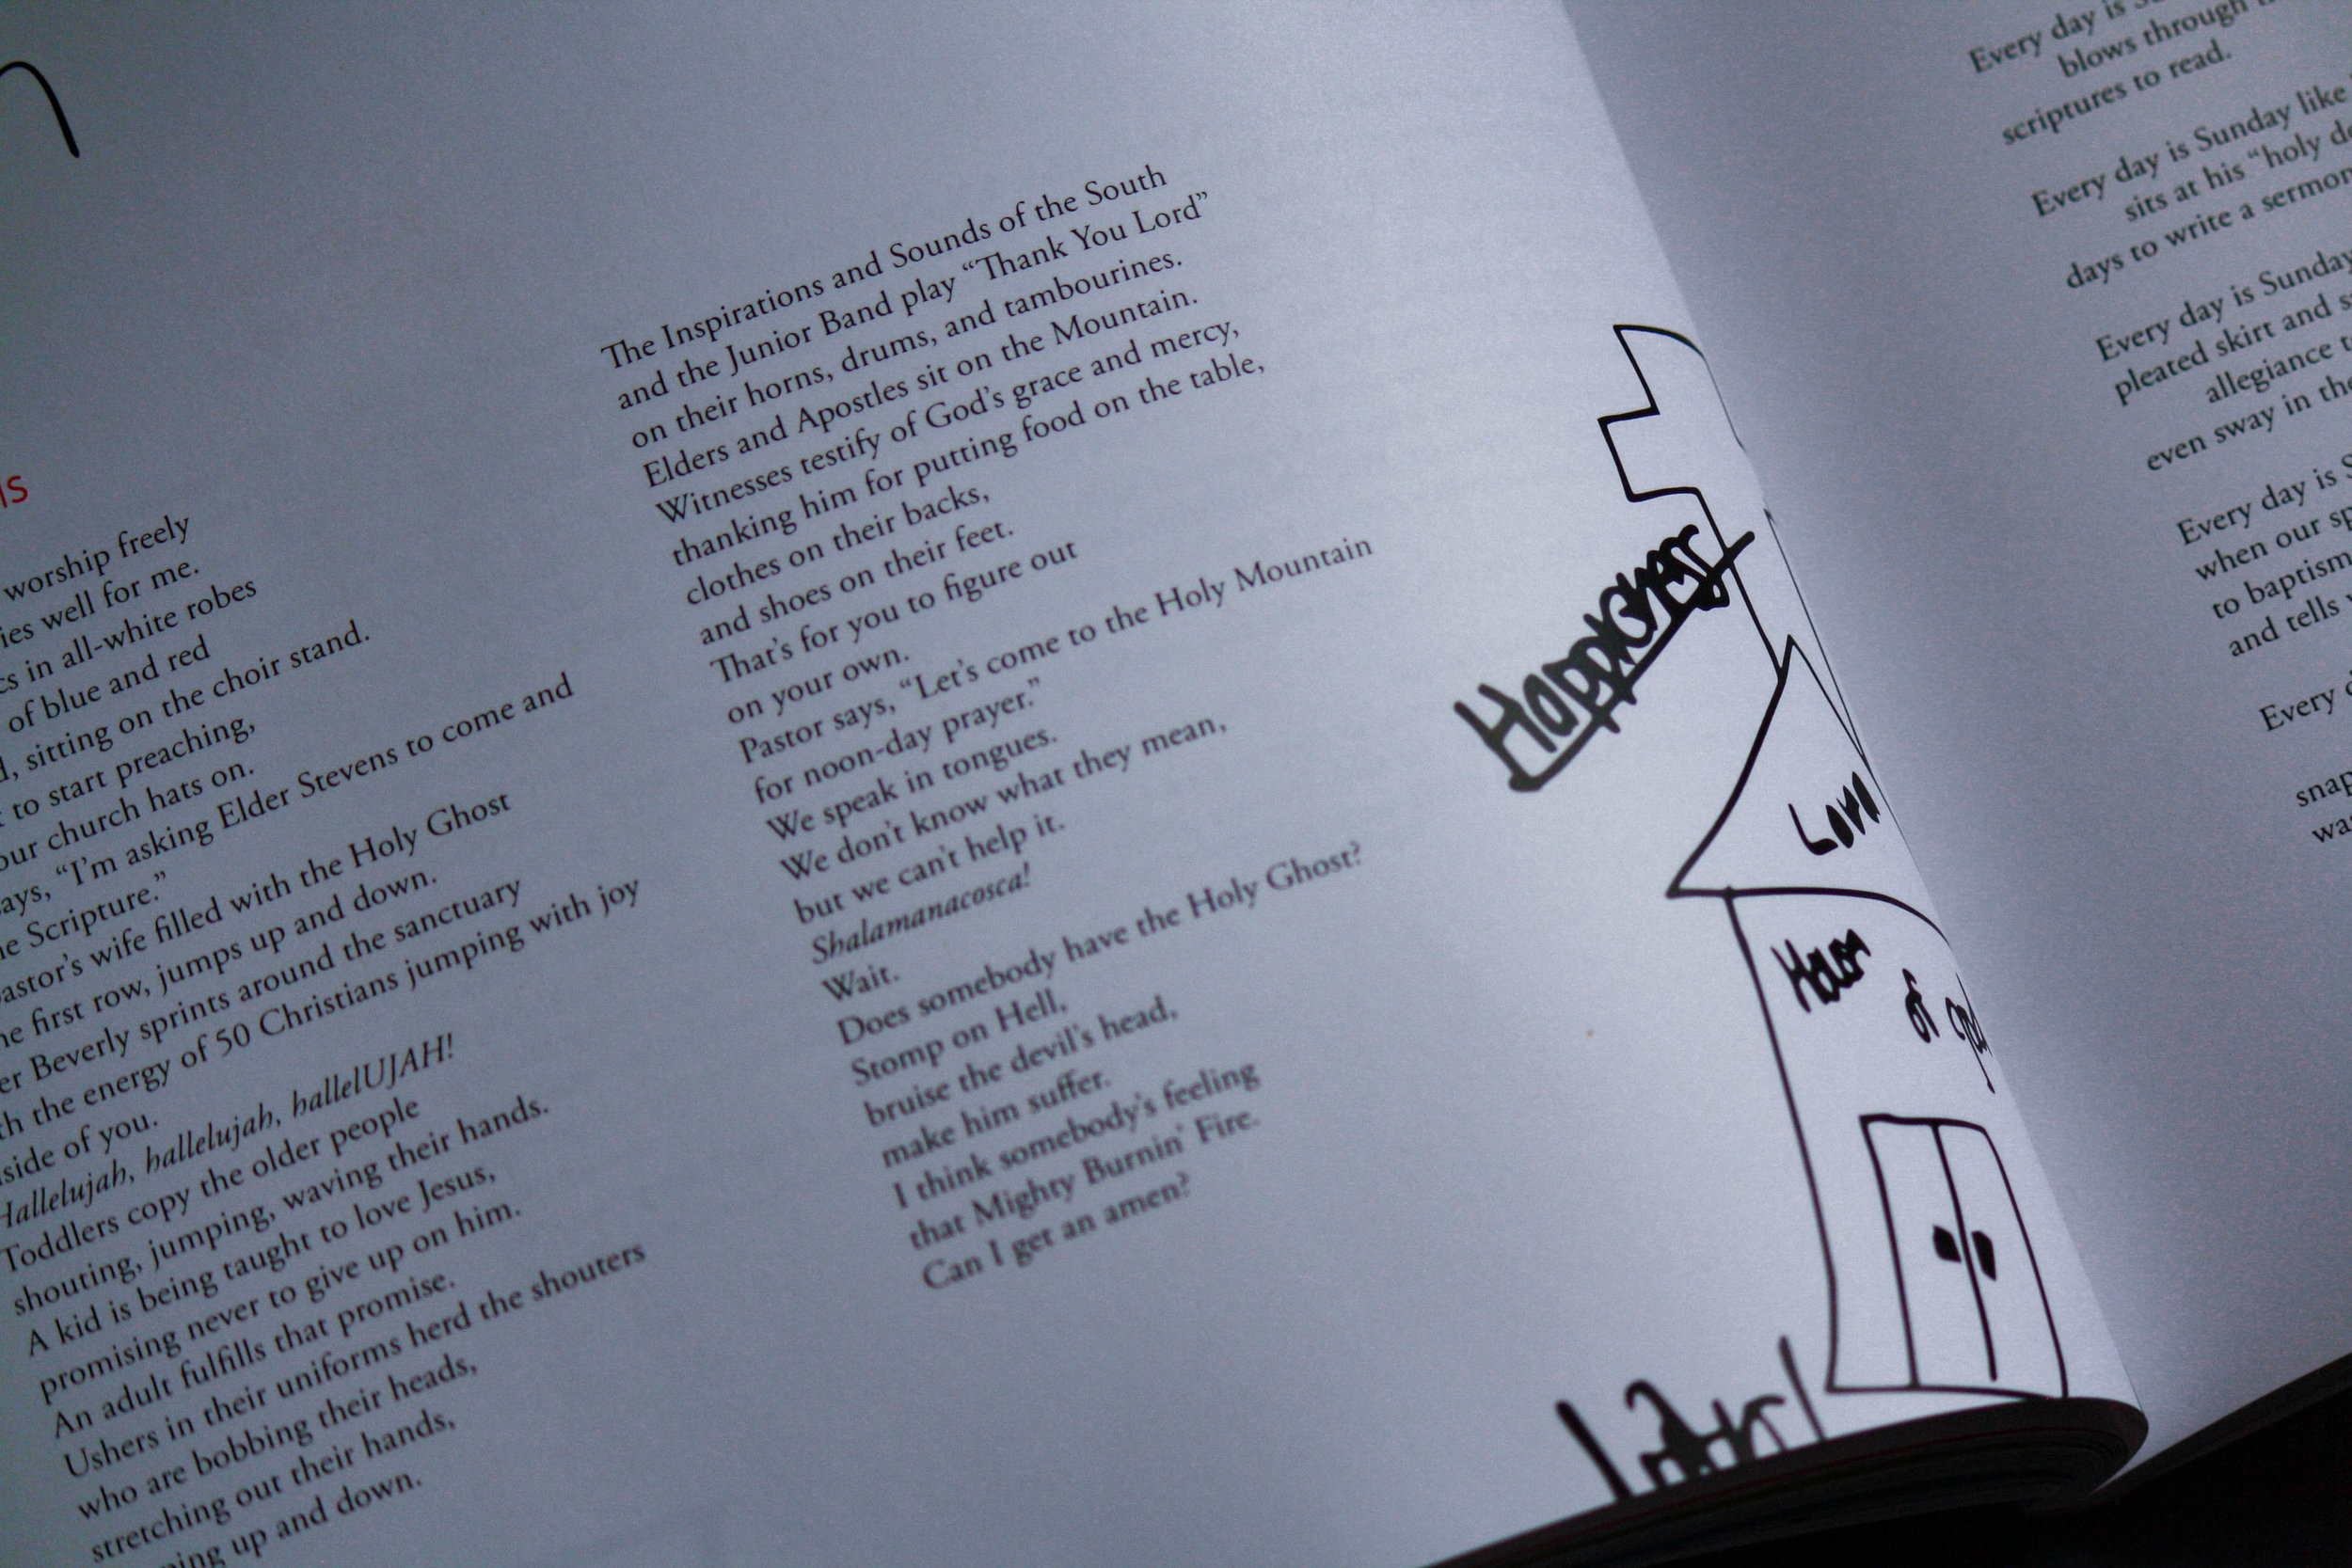 n
ls
worship freely
ies well for me.
cs in all-white robes
of blue and red
d, sitting on the choir stand.
to start preaching,
our church hats on.
says, “I’m asking Elder Stevens to come and
he Scripture.”
pastor’s wife filled with the Holy Ghost
he first row, jumps up and down.
er Beverly sprints around the sanctuary
th the energy of 50 Christians jumping with joy
nside of you.
Hallelujah, hallelujah, hallelUJAH!
Toddlers copy the older people
shouting, jumping, waving their hands.
A kid is being taught to love Jesus,
promising never to give up on him.
An adult fulfills that promise.
Ushers in their uniforms herd the shouters
who are bobbing their heads,
stretching out their hands,
ping up and down.
The Inspirations and Sounds of the South
and the Junior Band play “Thank You Lord”
on their horns, drums, and tambourines.
Elders and Apostles sit on the Mountain.
Witnesses testify of God’s grace and mercy,
thanking him for putting food on the table,
clothes on their backs,
and shoes on their feet.
That’s for you to figure out
on your own.
Pastor says, “Let’s come to the Holy Mountain
for noon-day prayer.”
We speak in tongues.
We don’t know what they mean,
but we can’t help it.
Shalamanacosca!
Wait.
Does somebody have the Holy Ghost?
Stomp on Hell,
bruise the devil’s head,
make him suffer.
I think somebody’s feeling
that Mighty Burnin’ Fire.
Can I get an amen?
Happiness
Lord
of God
Every day is S
blows through
scriptures to read.
Every day is Sunday like
sits at his “holy de
days to write a sermon
Every day is Sunday
pleated skirt and s
allegiance t
even sway in the
Every day is S
when our sp
to baptism
and tells
Every d
snap
wa